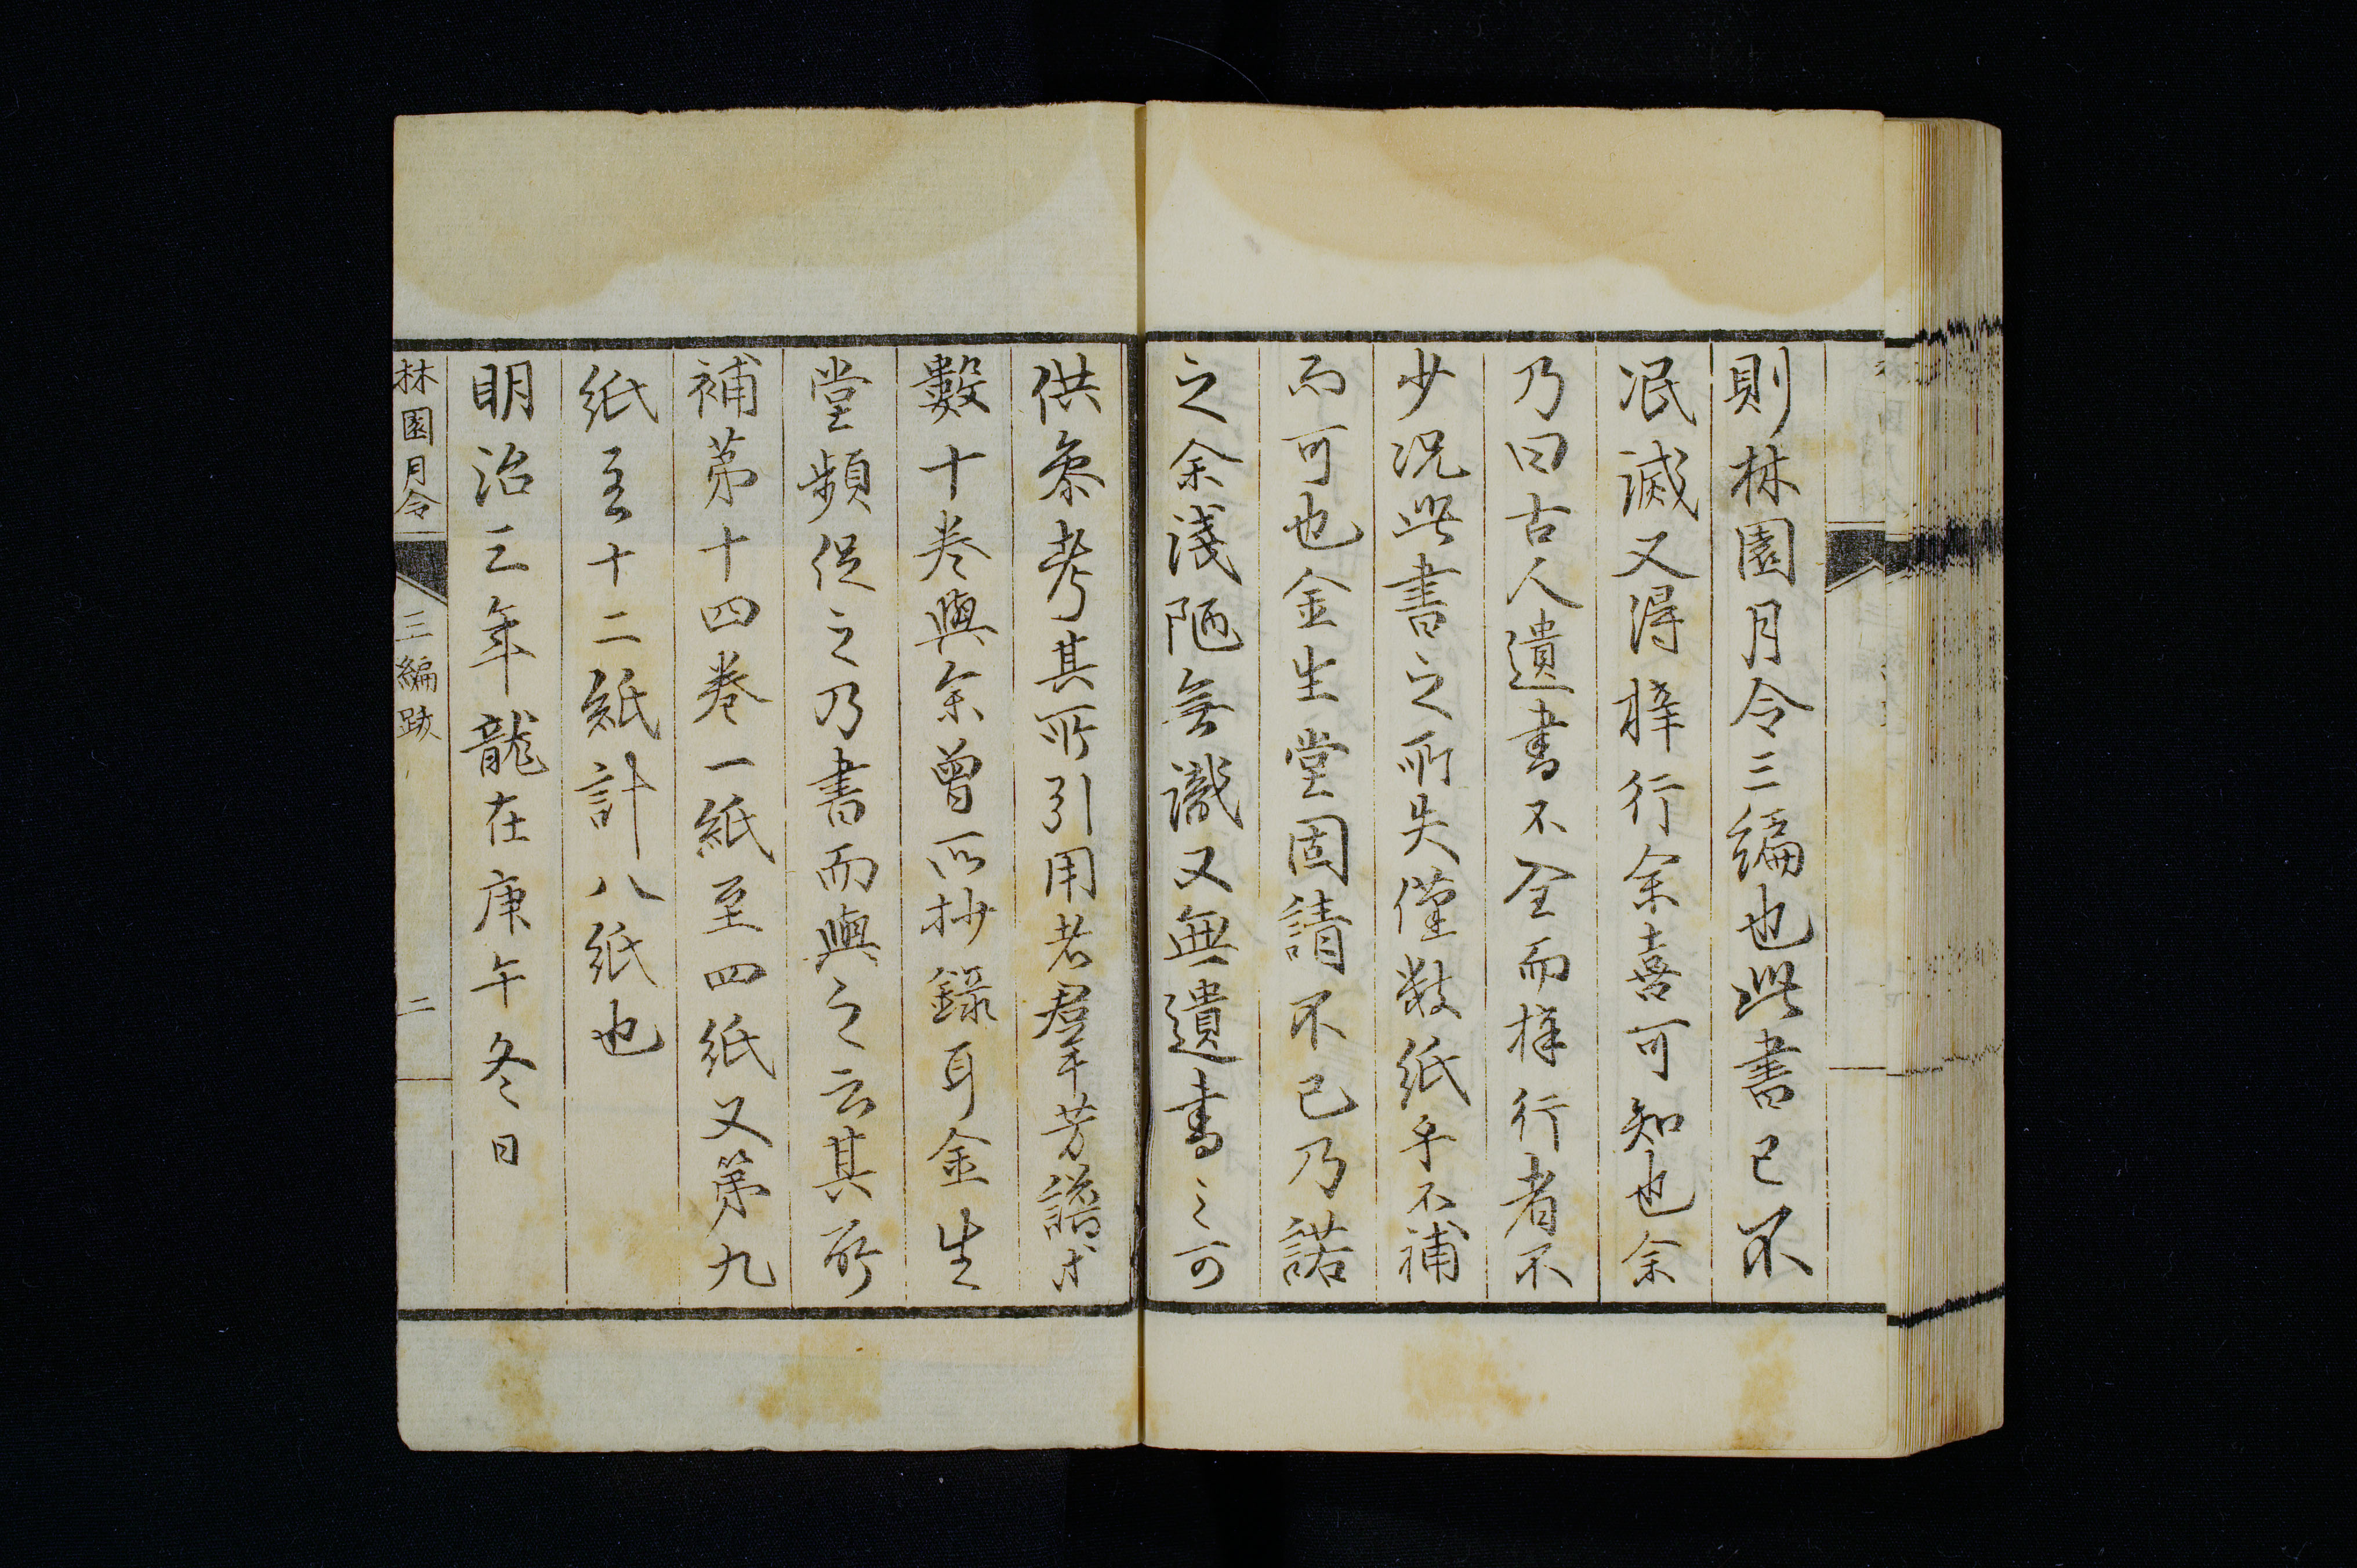 則林園月令三編也此書已不
泯滅又得梓行余喜可知也余
乃曰古人遺書不全而梓行者不
少況此書之所失僅數紙乎不補
而可也金生堂固請不已乃諾
之余淺陋無識又無遺書之可
供參考其所引用者群芳譜等
數十卷與余曾所抄錄耳金生
堂頻促之乃書而與之云其所
補第十四卷一紙至四紙又第九
紙至十二紙計八紙也
明治三年龍在庚午冬日
林園月令 三編跋 二